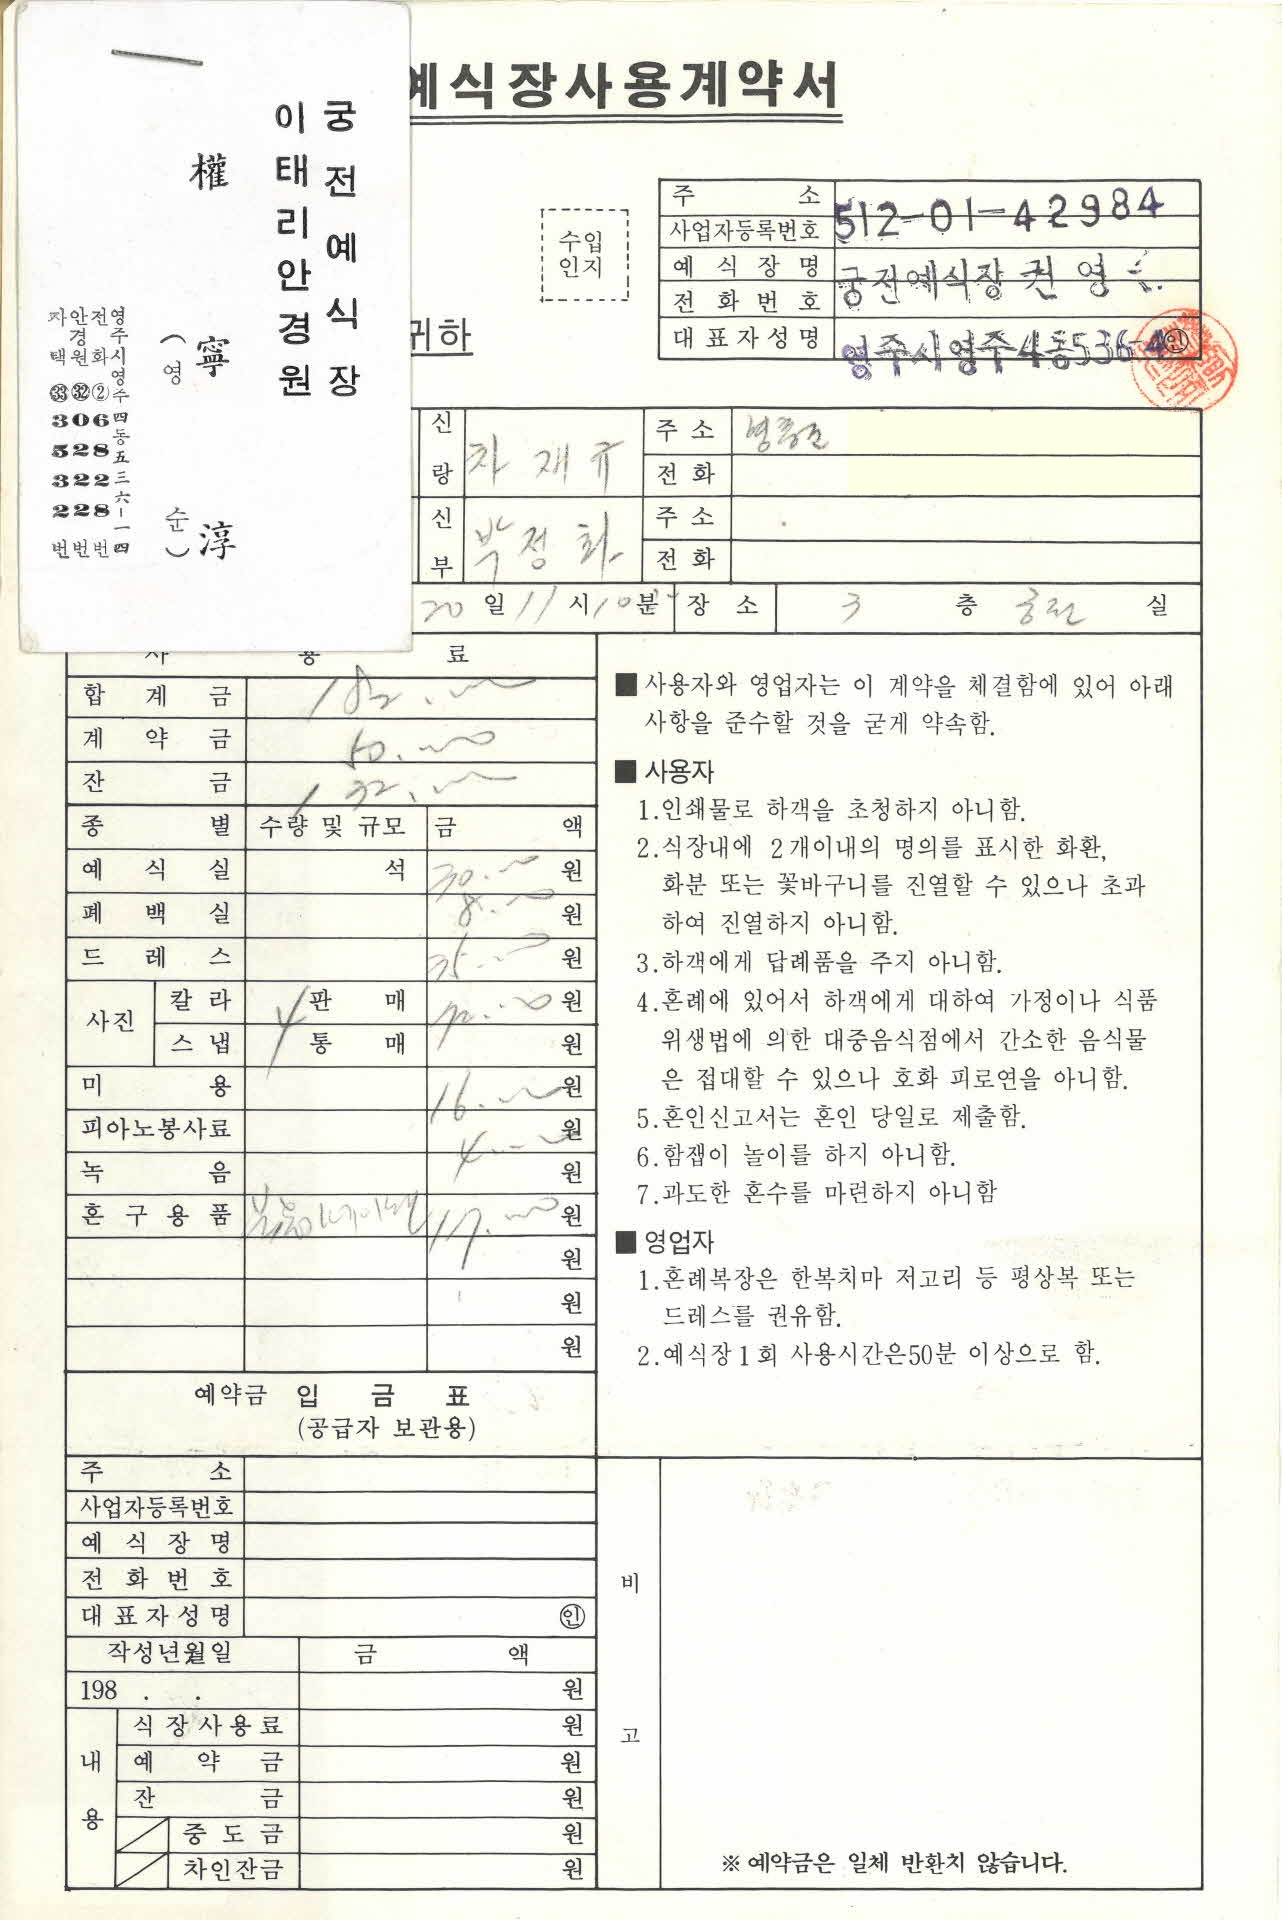 예식장사용계약서
궁전예식장
이태리안경원
權寧淳
(영순)
영주시영주四동五三六-一四
전화 ② 6828번
안경원 ㉜ 0222번
자택 ㉝ 3532번
수입
인지
귀하
주소
사업자등록번호 512-01-42984
예식장명 궁전예식장 권영
전화번호
대표자성명 영주시영주4동536-4 ㊞
신랑 차재규 주소
전화
신부 박정화 주소
전화
20일 11시 10분 장소 3층 궁전실
사용료
합계금 182.000
계약금 50.000
잔금 132.000
종별 수량 및 규모 금액
예식실 석 30.000원
폐백실 8.000원
드레스 35.000원
사진 칼라 4판 매 원
스냅 통 매 원
미용 16.000원
피아노봉사료 4.000원
녹음 원
혼구용품 17.000원
원
원
원
■ 사용자와 영업자는 이 계약을 체결함에 있어 아래
사항을 준수할 것을 굳게 약속함.
■ 사용자
1.인쇄물로 하객을 초청하지 아니함.
2.식장내에 2개이내의 명의를 표시한 화환,
화분 또는 꽃바구니를 진열할 수 있으나 초과
하여 진열하지 아니함.
3.하객에게 답례품을 주지 아니함.
4.혼례에 있어서 하객에게 대하여 가정이나 식품
위생법에 의한 대중음식점에서 간소한 음식물
은 접대할 수 있으나 호화 피로연을 아니함.
5.혼인신고서는 혼인 당일로 제출함.
6.함잽이 놀이를 하지 아니함.
7.과도한 혼수를 마련하지 아니함
■ 영업자
1.혼례복장은 한복치마 저고리 등 평상복 또는
드레스를 권유함.
2.예식장1회 사용시간은50분 이상으로 함.
예약금 입금표
(공급자 보관용)
주소
사업자등록번호
예식장명
전화번호
대표자성명 ㊞
작성년월일 금액
198 . . 원
내용
식장사용료 원
예약금 원
잔금 원
중도금 원
차인잔금 원
비고
※예약금은 일체 반환치 않습니다.